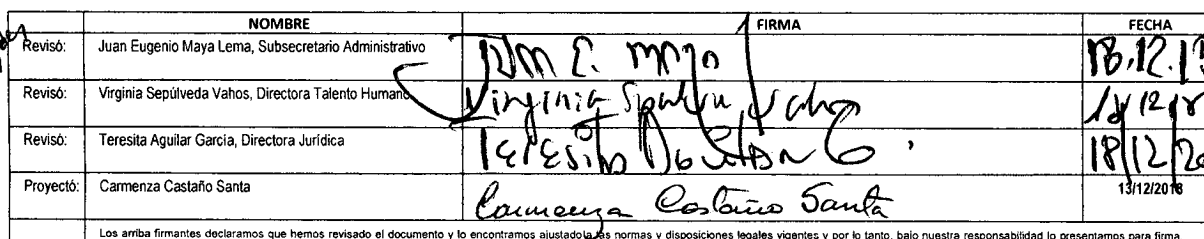 NOMBRE FIRMA FECHA
Revisó: Juan Eugenio Maya Lema, Subsecretario Administrativo 18.12.
Revisó: Virginia Sepúlveda Vahos, Directora Talento Humano Virginia Vahos
Revisó: Teresita Aguilar García, Directora Jurídica Teresita 18/12/20
Proyectó: Carmenza Castaño Santa Carmenza Castaño Santa 13/12/2018
Los arriba firmantes declaramos que hemos revisado el documento y lo encontramos ajustado las normas y disposiciones legales vigentes y por lo tanto, bajo nuestra responsabilidad lo presentamos para firma